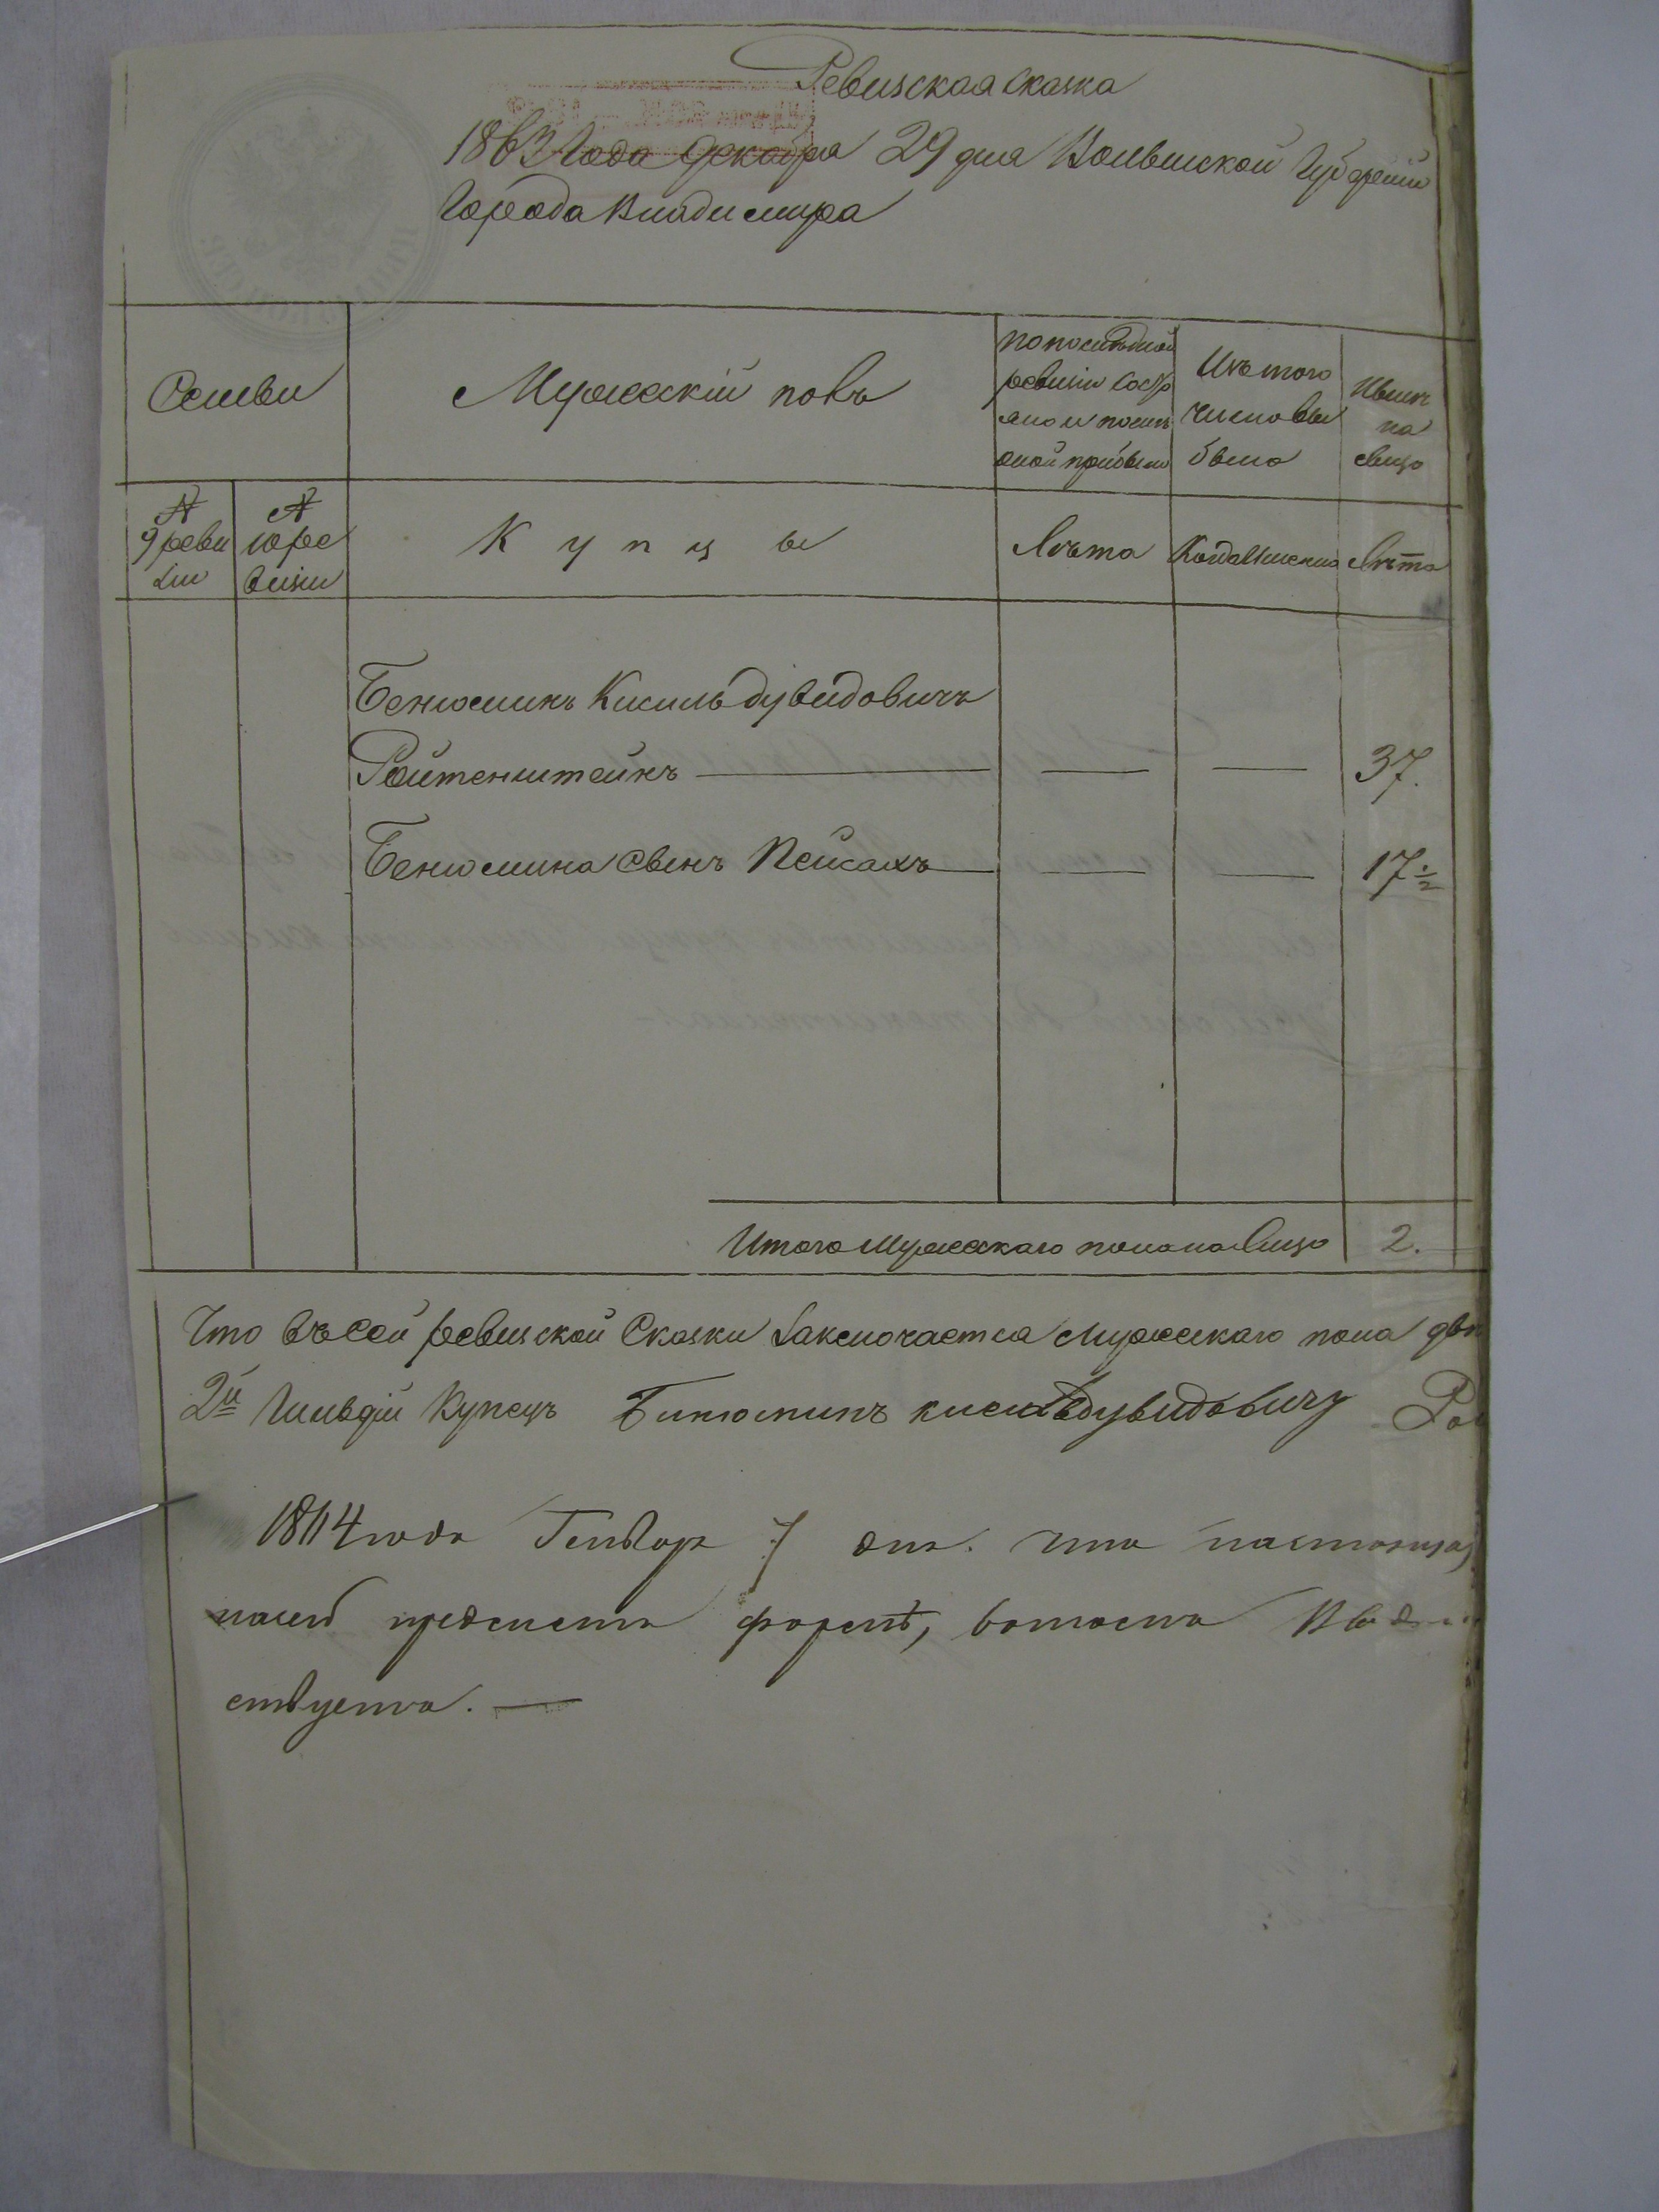 Ревизская сказка
1863 года Декабря 29 дня Волынской Губерніи
Города Владимира
Семьи
Мужескій полъ
по последней
ревизіи состо
яло и послѣ
оной прибыло
Изъ того
числа вы
было
Нынѣ
на
лицо
№
9 реви
зіи
№
10 ре
визіи
Купцы
Лѣта
Когда именно
Лѣта
Бенюминъ Кисиль Дувидовичъ
Ройтенштейнъ — — — 37.
Бенюмина сынъ Пейсахъ — — — 17 1/2
Итого Мужескаго пола на лицо 2.
Что въ сей ревизской Сказки Заключается Мужескаго пола
2й Гильдіи Купецъ Бинюминъ Кисель Дувидовичу
1864 года Генвар 7 дня. что настояща
форме,
ствуетъ. —